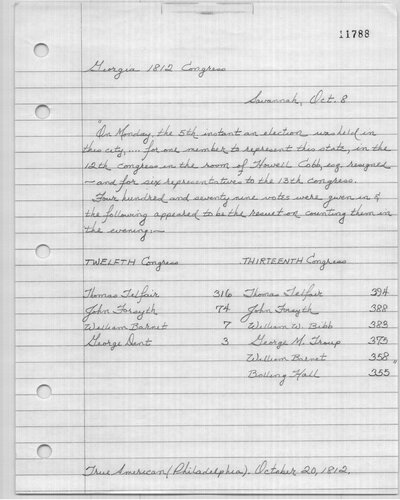 11788
Georgia 1812 Congress
Savannah, Oct. 8
"On Monday, the 5th instant an election was held in
this city,.... for one member to represent this state, in the
12th congress in the room of Howell Cobb, esq. resigned
— and for six representatives to the 13th congress.
Four hundred and seventy nine votes were given in &
the following appeared to be the result on counting them in
the evening:—
TWELFTH Congress THIRTEENTH Congress
Thomas Telfair 316 Thomas Telfair 394
John Forsyth 74 John Forsyth 388
William Barnet 7 William W. Bibb 383
George Dent 3 George M. Troup 375
William Barnet 358
Bolling Hall 355"
True American (Philadelphia). October 20, 1812.